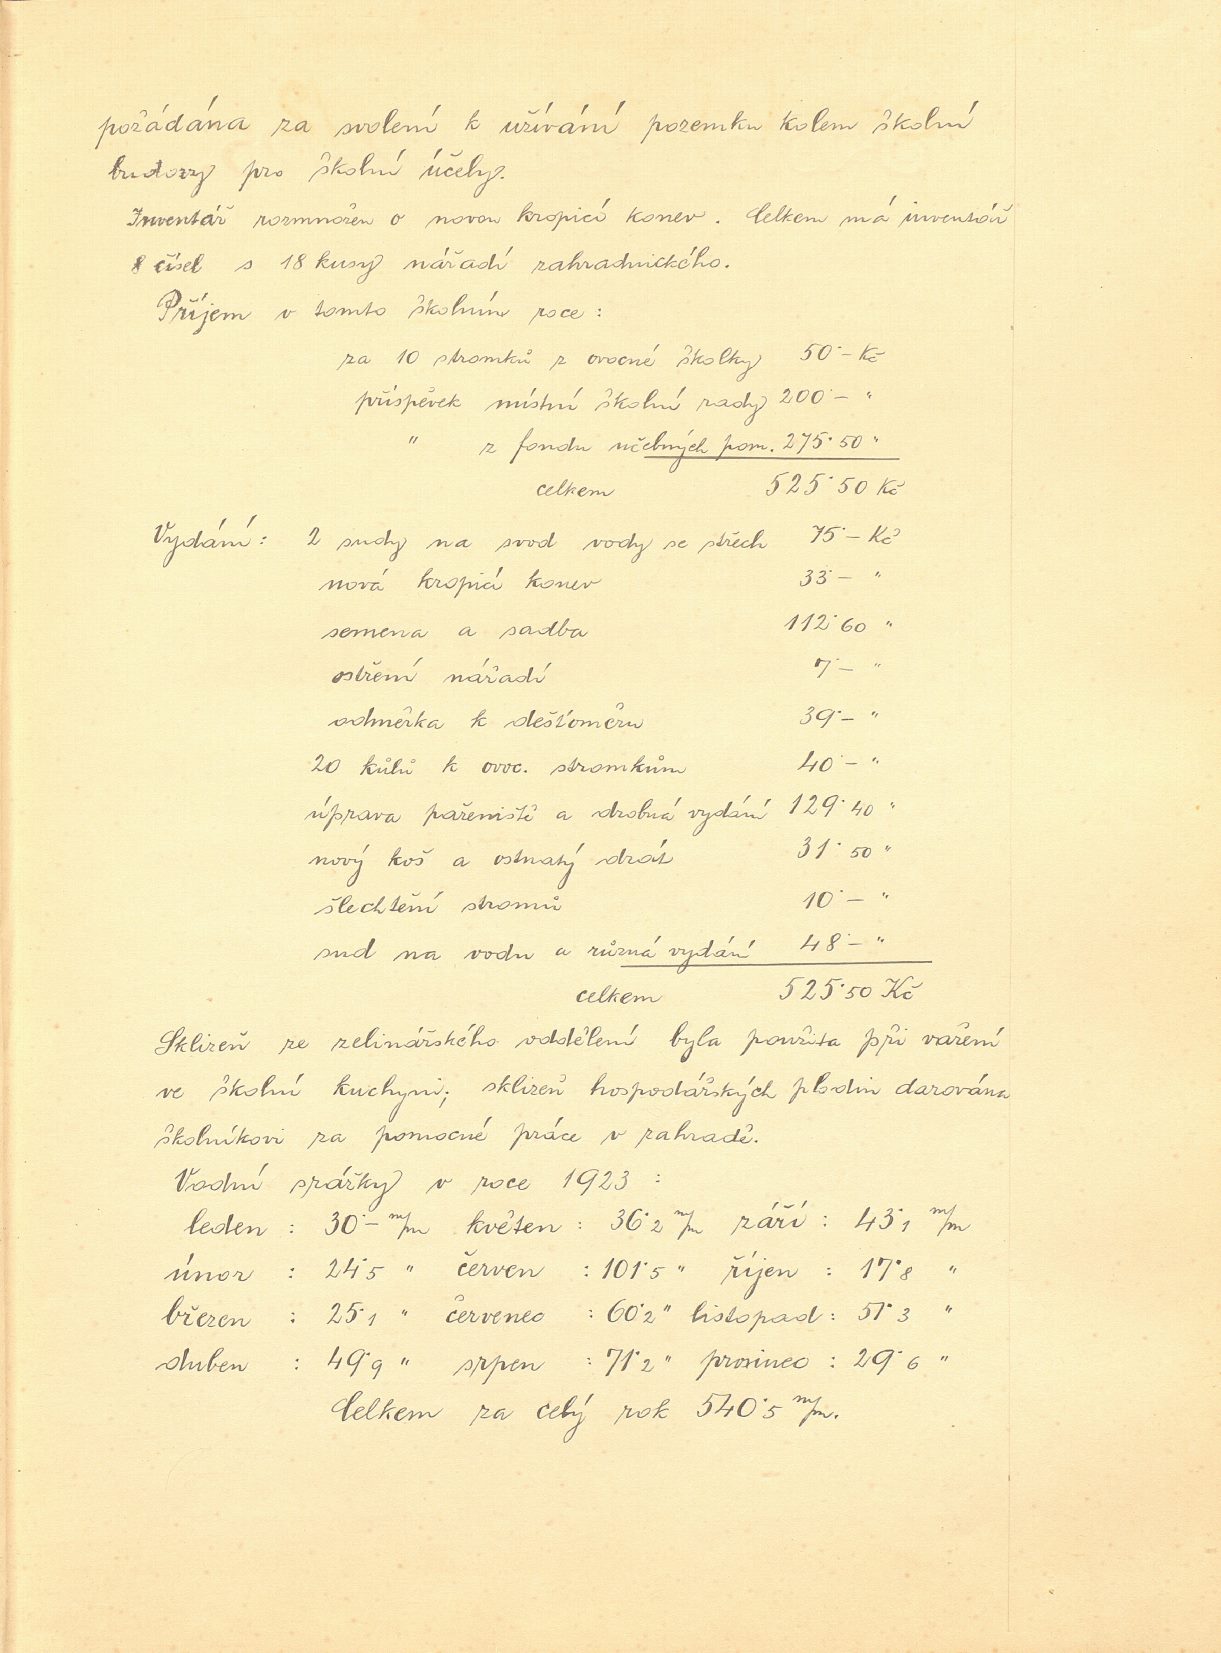 požádána za svolení k užívání pozemku kolem školní
budovy pro školní účely.
Inventář rozmnožen o novou kropicí konev. Celkem má inventář
8 čísel s 18 kusy nářadí zahradnického.
Příjem v tomto školním roce :
za 10 stromků z ovocné školky 50·– Kč
příspěvek místní školní rady 200·– "
" z fondu učebných pom. 275·50 "
celkem 525·50 Kč
Vydání : 2 sudy na svod vody se střech 75·– Kč
nová kropicí konev 33·– "
semena a sadba 112·60 "
ostření nářadí 7·– "
odměrka k dešťoměru 39·– "
20 kůlů k ovoc. stromkům 40·– "
úprava pařeniště a drobná vydání 129·40 "
nový koš a ostnatý drát 31·50 "
šlechtění stromů 10·– "
sud na vodu a různá vydání 48·– "
celkem 525·50 Kč
Sklizeň ze zelinářského oddělení byla použita při vaření
ve školní kuchyni; sklizeň hospodářských plodin darována
školníkovi za pomocné práce v zahradě.
Vodní srážky v roce 1923 :
leden : 30·– m/m květen : 36·2 m/m září : 43·1 m/m
únor : 24·5 " červen : 101·5 " říjen : 17·8 "
březen : 25·1 " červenec : 60·2 " listopad : 51·3 "
duben : 49·9 " srpen : 71·2 " prosinec : 29·6 "
Celkem za celý rok 540·5 m/m.